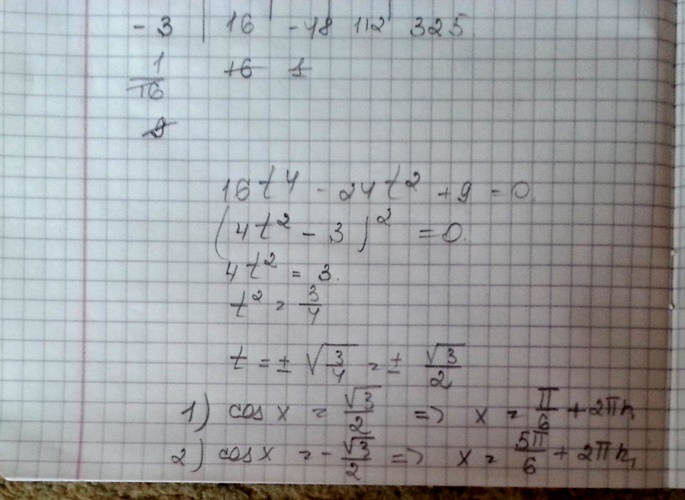 -3 | 16 | -48 | 112 | 325
1/16 +6 1
9
16t⁴ - 24t² + 9 = 0.
(4t² - 3)² = 0.
4t² = 3.
t² = 3/4
t = ± √(3/4) = ± √3/2
1) cos x = √3/2 => x = π/6 + 2πn,
2) cos x = -√3/2 => x = 5π/6 + 2πn,